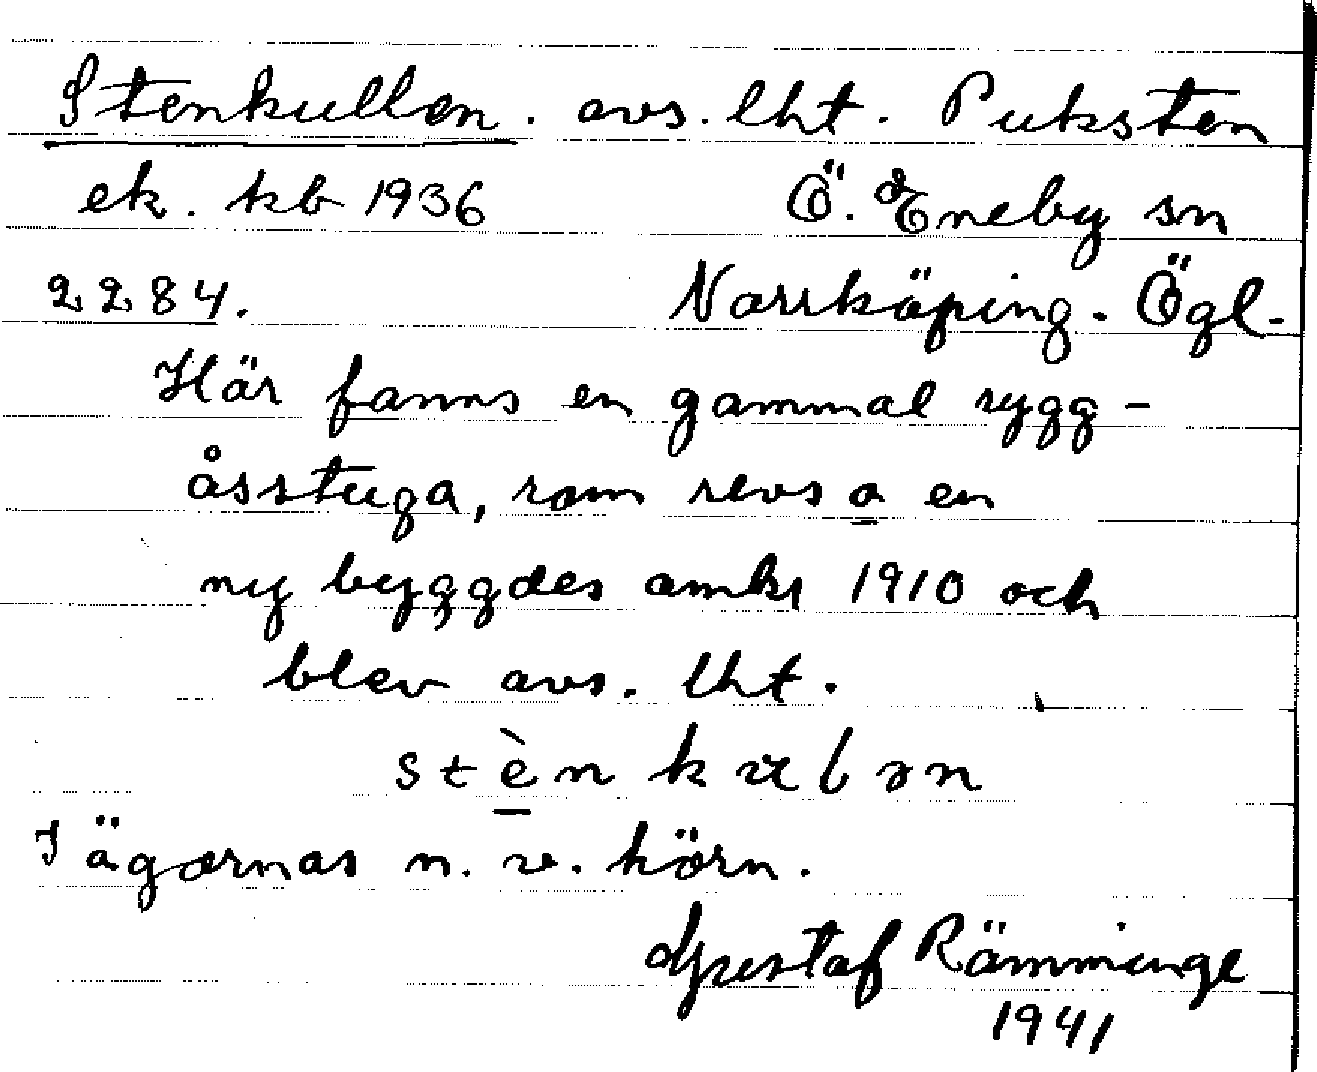 Stenkullen. avs. lht. Puksten
ek. kb 1936 Ö. Eneby sn
2284. Norrköping. Ögl.
Här fanns en gammal rygg-
åsstuga, som revs o en
ny byggdes omkr 1910 och
blev avs. lht.
stèn kulən
I ägornas n. v. hörn.
Gustaf Rämminge
1941